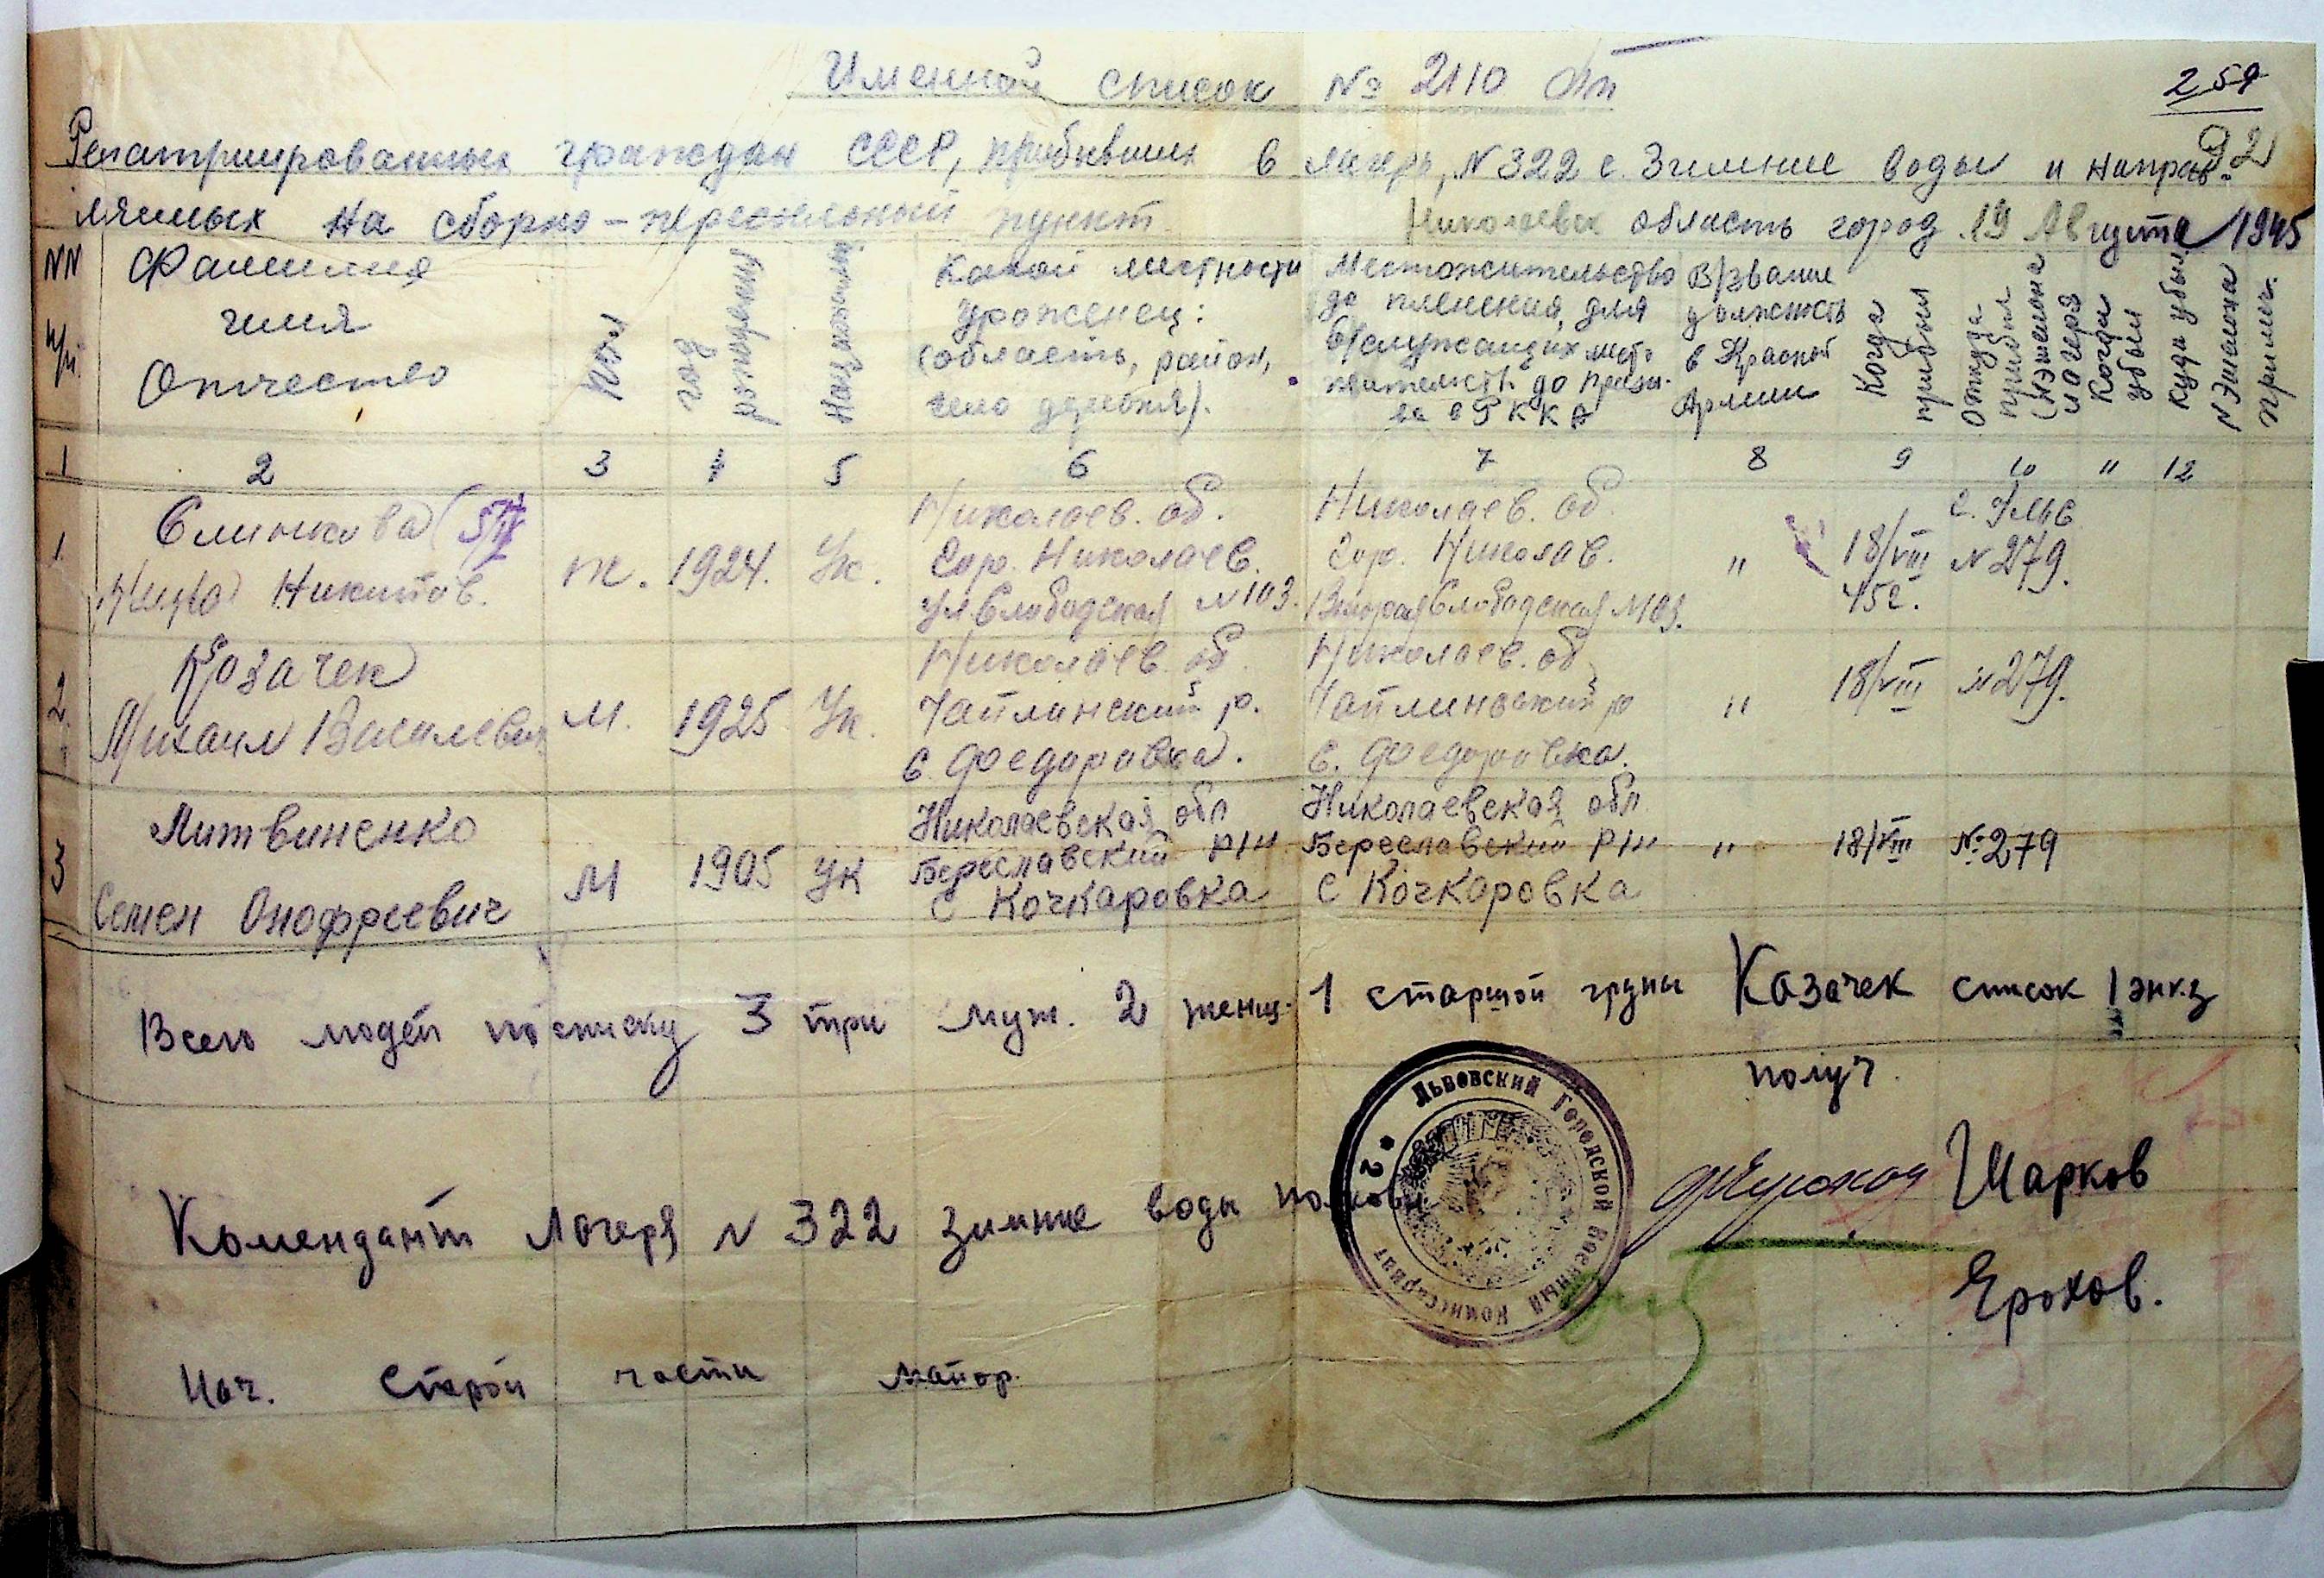 Именной список № 2110
259
92
Репатриированных граждан СССР, прибывших в лагерь, N 322 с. Зимние воды и направ-
ляемых на сборно-пересыльный пункт Николаевск область город 19 Августа 1945
NN п/п
Фамилия
имя
Отчество
Пол
год рождения
Национальность
Какой местности
Уроженец:
(область, район,
село деревня).
Местожительство
до пленения, для
в/служащих место
жительств. до призы-
ва в РККА
В/звание
должность
в Красной
Армии
Когда прибыл
Откуда прибыл (N эшелона лагеря
Когда убыл
Куда убыл
N Эшелона
примеч.
1 2 3 4 5 6 7 8 9 10 11 12
1. Слинкова
Никитов. ж. 1924. Ук.
Николаев. об.
Гор. Николаев.
Ул. Слободская N 103.
Николаев. об.
Гор. Николав.
Вторая Слободская N 103.
" 18/VIII
45г.
N 279.
2. Козачек
Михаил Василевич М. 1925 Ук.
Николаев. об.
Чаплинский р.
с. Федоровка.
Николаев. об.
Чаплинский р
с. Федоровка.
" 18/VIII N 279.
3 Литвиненко
Семен Онофреевич М 1905 Ук
Николаевская обл
Береславский р/н
с Кочкаровка
Николаевская обл.
Береславский р/н
с Кочкаровка
" 18/VIII № 279
Всего людей по списку 3 три муж. 2 женщ. 1 старшой групы Козачек список 1 экз
получ.
Львовский Городской Военный Комиссариат
* 2
Комендант Лагеря N 322 зимние воды Шарков
Ерохов.
Нач. майор.